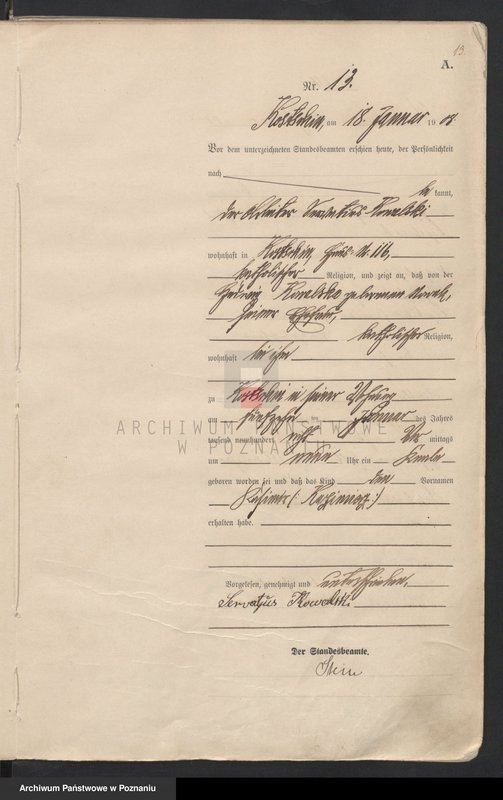 13.
A.
Nr. 13.
Kostschin, am 18. Januar 1908
Vor dem unterzeichneten Standesbeamten erschien heute, der Persönlichkeit
nach be kannt,
der Arbeiter Servatius Kowalski
wohnhaft in Kostschin, Haus-Nr. 116,
katholischer Religion, und zeigt an, daß von der
Hedwig Kowalska geborenen Nowak,
seiner Ehefrau,
katholischer Religion,
wohnhaft bei ihm
zu Kostschin in seiner Wohnung
am fünfzehnten Januar des Jahres
tausend neunhundert acht Vor mittags
um neun Uhr ein Knabe
geboren worden sei und daß das Kind den Vornamen
Kasimir (: Kazimierz :)
erhalten habe.
Vorgelesen, genehmigt und unterschrieben.
Servatjus Kowalski
Der Standesbeamte.
ARCHIWUM PAŃSTWOWE
W POZNANIU
Archiwum Państwowe w Poznaniu